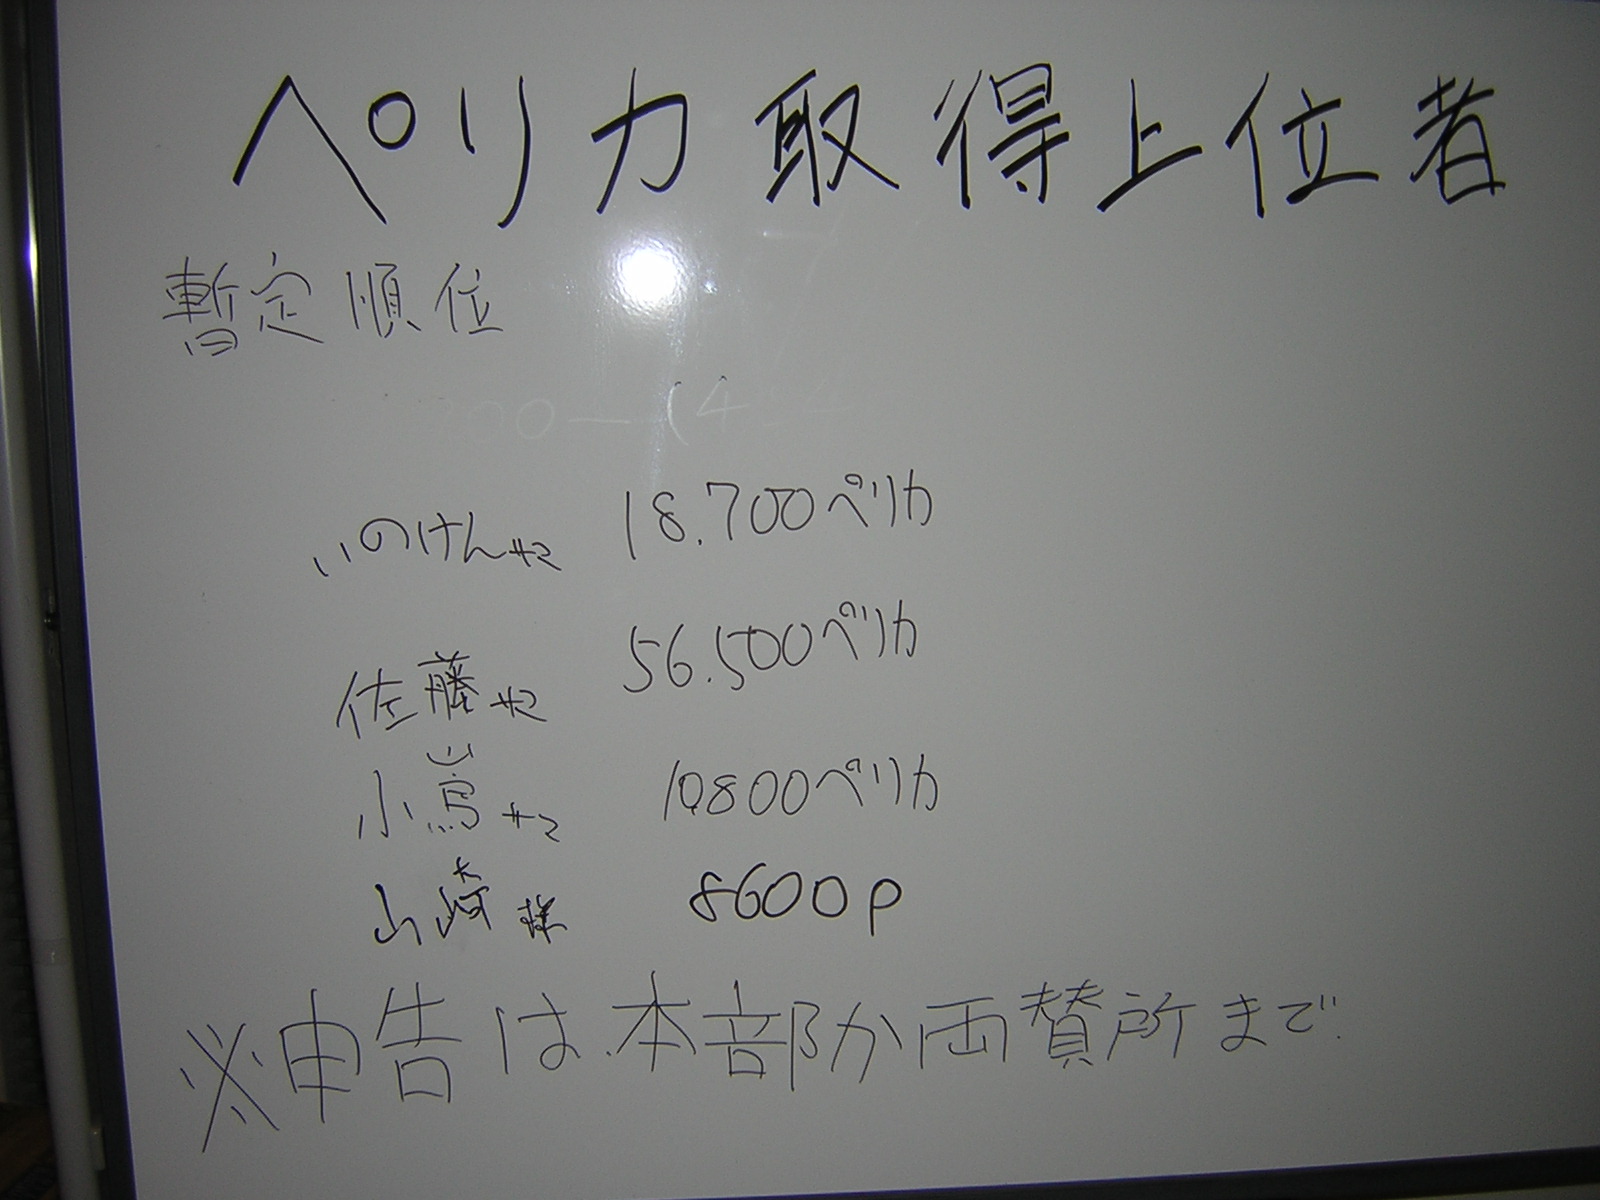 ペリカ取得上位者
暫定順位
いのけんサマ 18.700ペリカ
佐藤サマ 56.500ペリカ
小嶌サマ 10.800ペリカ
山崎様 8600p
※申告は本部か両賛所まで